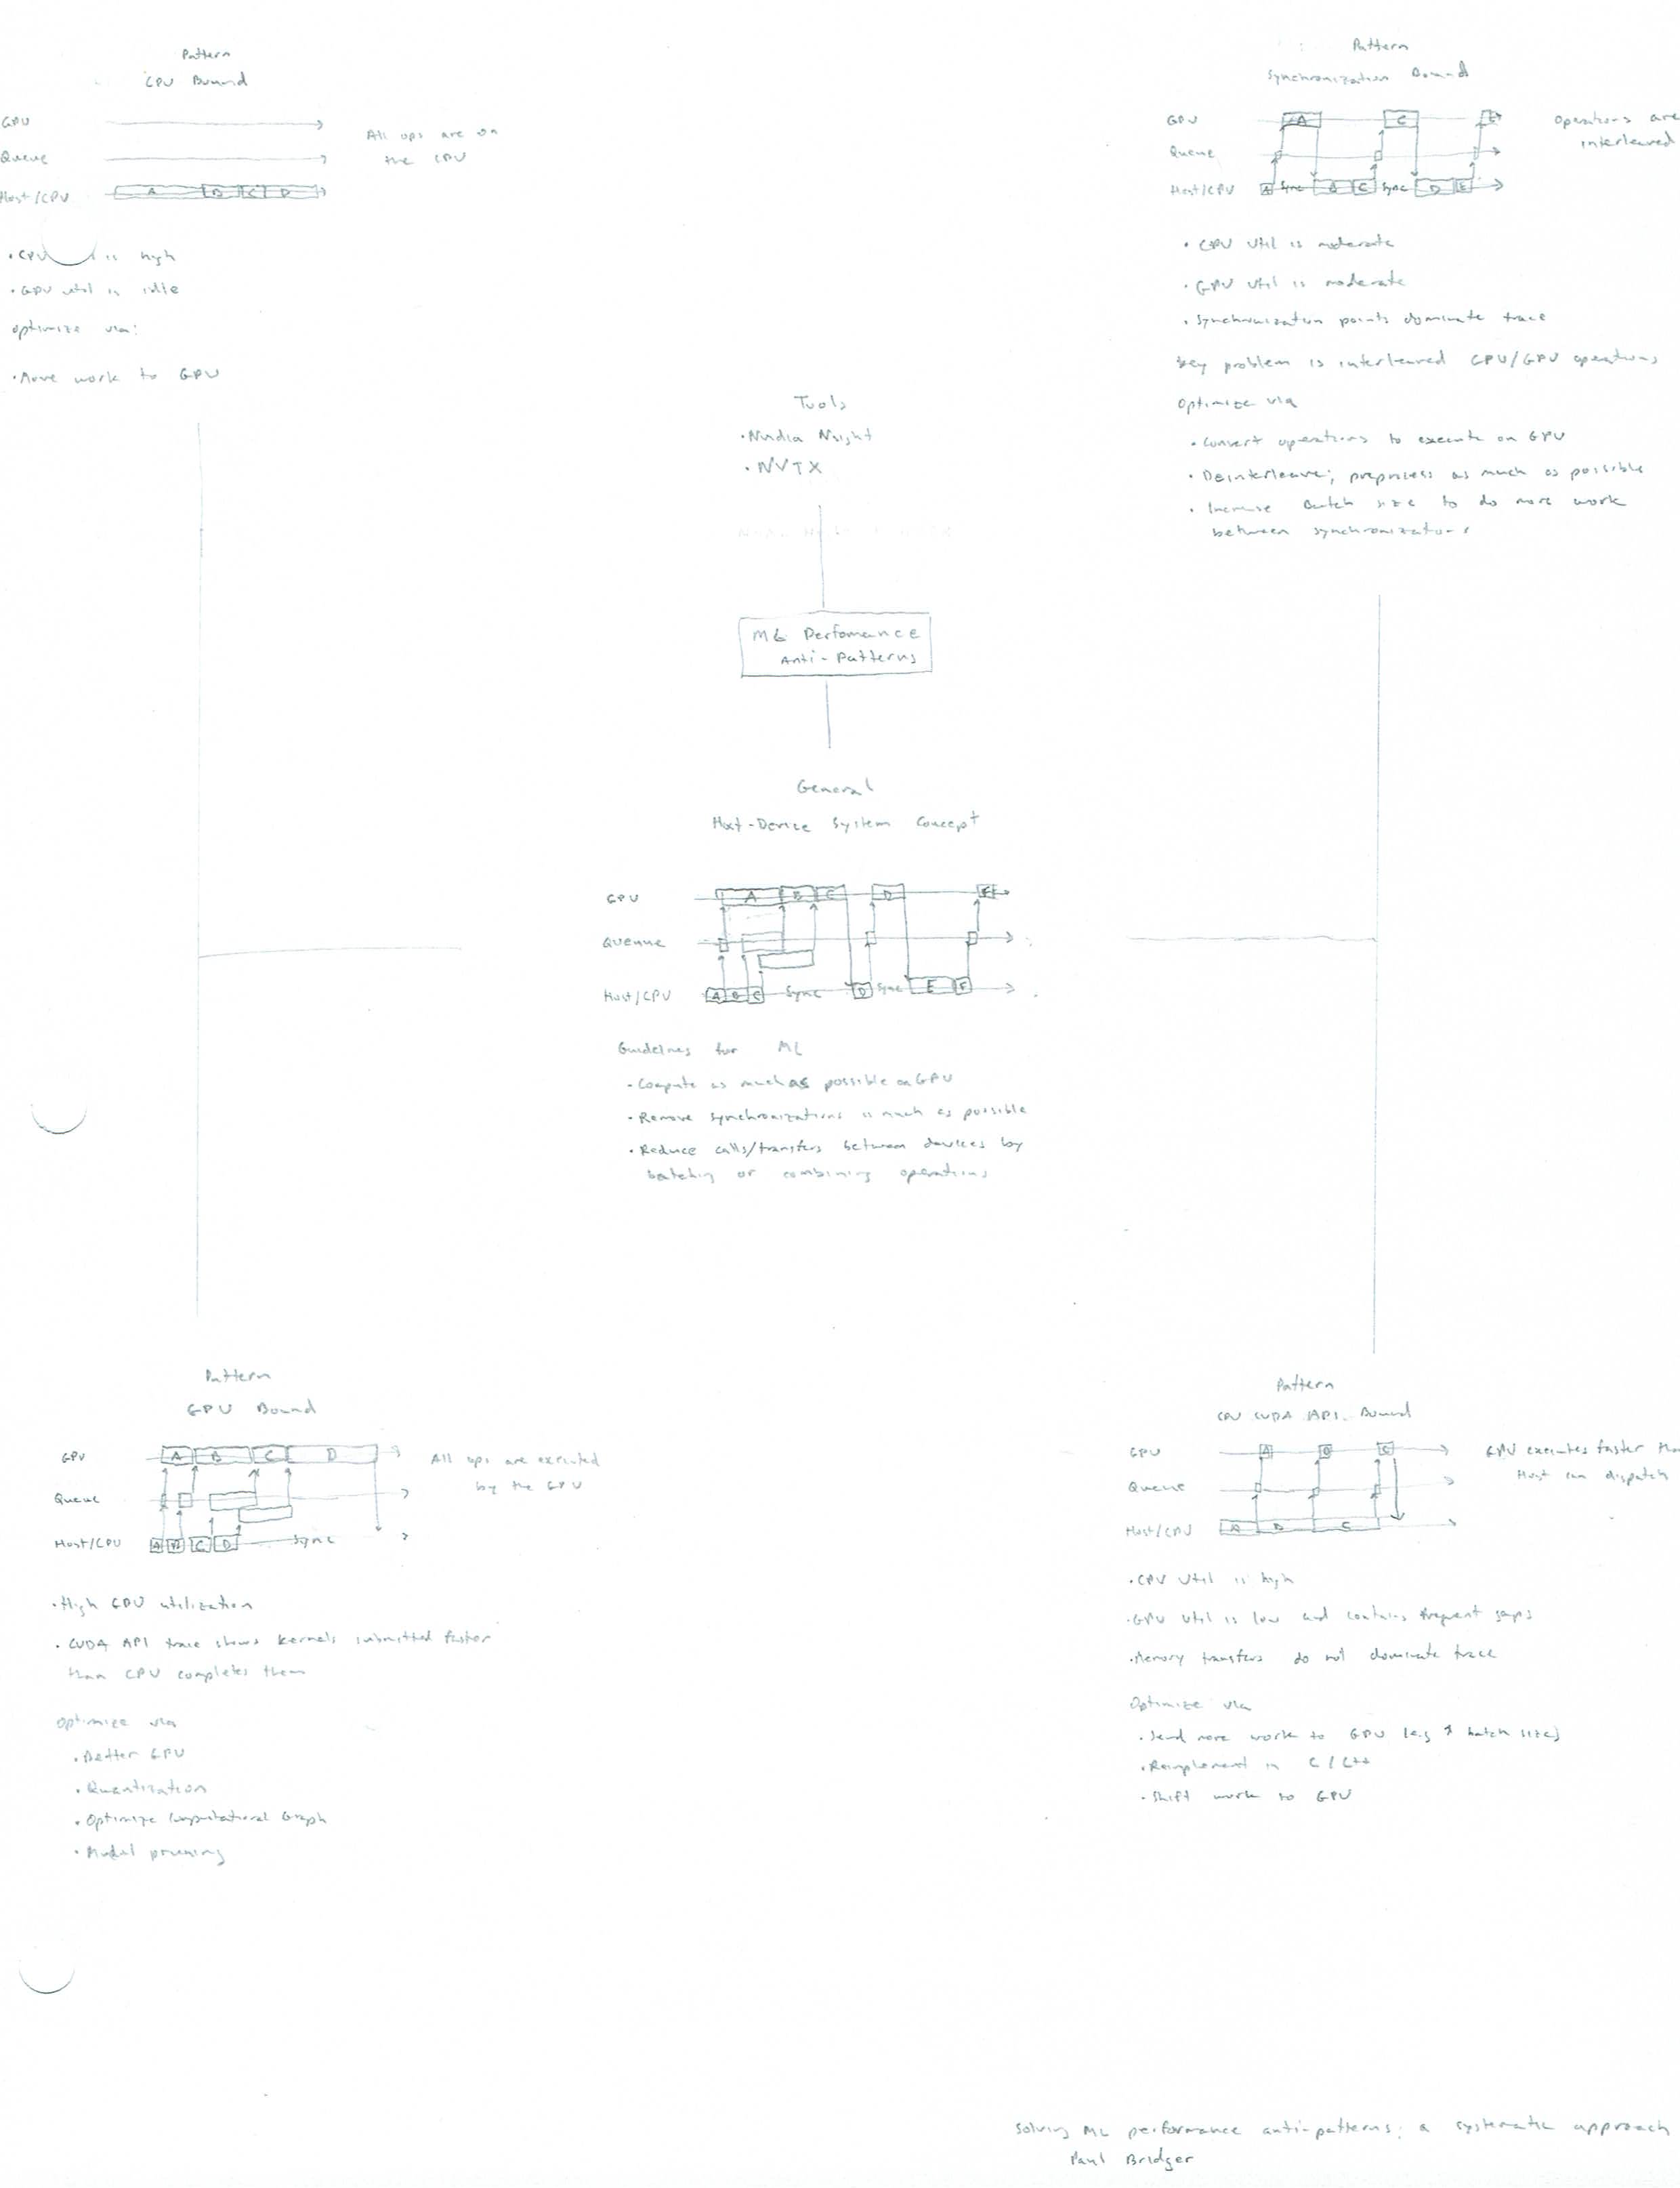 Pattern
CPU Bound
GPU
Queue
Host/CPU
A B C D
All ops are on
the CPU
• CPU is high
• GPU util is idle
optimize via:
• Move work to GPU
Pattern
Synchronization Bound
GPU
A C E
Queue
Host/CPU
A Sync B C Sync D E
Operations are
interleaved
• CPU util is moderate
• GPU util is moderate
• Synchronization points dominate trace
Key problem is interleaved CPU/GPU operations
Optimize via
• Convert operations to execute on GPU
• Deinterleave; preprocess as much as possible
• Increase Batch size to do more work
between synchronizations
Tools
• Nvidia Nsight
• NVTX
ML Perfomance
Anti-Patterns
General
Host-Device System Concept
GPU
A B C D F
Queue
Host/CPU
A B C Sync D Sync E F
Guidelines for ML
• Compute as much as possible on GPU
• Remove synchronizations as much as possible
• Reduce calls/transfers between devices by
batching or combining operations
Pattern
GPU Bound
GPU
A B C D
Queue
Host/CPU
A B C D Sync
All ops are executed
by the GPU
• High GPU utilization
• CUDA API trace shows kernels submitted faster
than CPU completes them
Optimize via
• Better GPU
• Quantization
• Optimize Computational Graph
• Model pruning
Pattern
CPU CUDA API Bound
GPU
A B C
Queue
Host/CPU
A B C
GPU executes faster tha
Host can dispatch
• CPU Util is high
• GPU Util is low and contains frequent gaps
• Memory transfers do not dominate trace
Optimize via
• Send more work to GPU (eg ↑ batch size)
• Reimplement in C/C++
• Shift work to GPU
Solving ML performance anti-patterns; a systematic approach
Paul Bridger